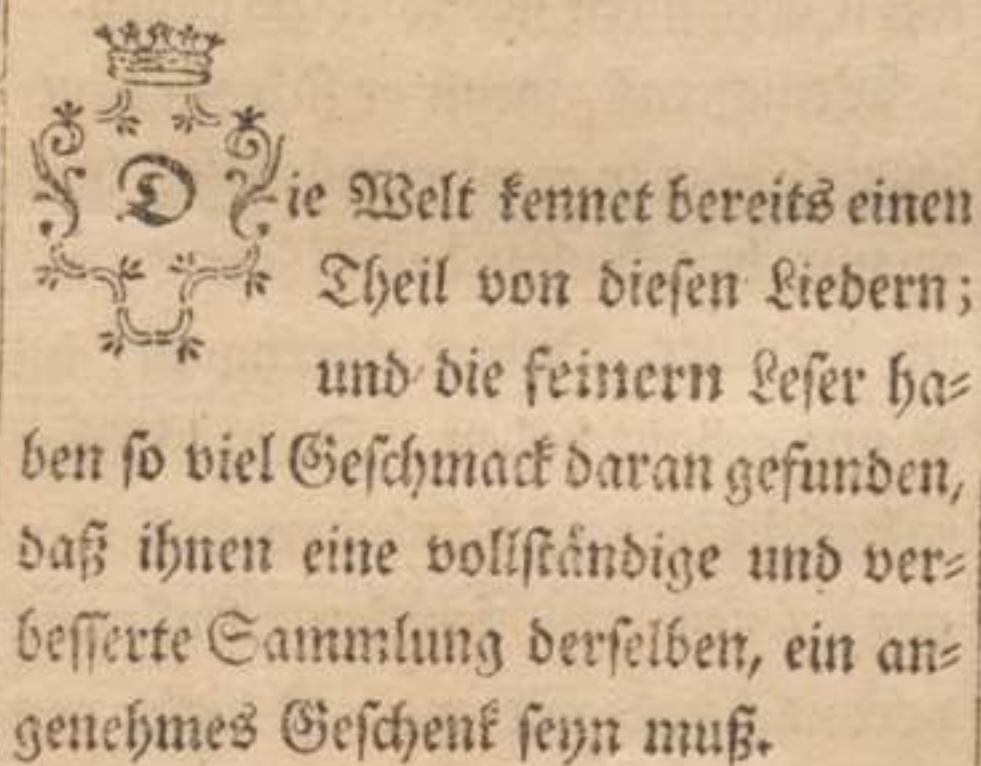 Die Welt kennet bereits einen
Theil von dieſen Liedern;
und die feinern Leſer ha⸗
ben ſo viel Geſchmack daran gefunden,
daß ihnen eine vollſtändige und ver⸗
beſſerte Sammlung derſelben, ein an⸗
genehmes Geſchenk ſeyn muß.